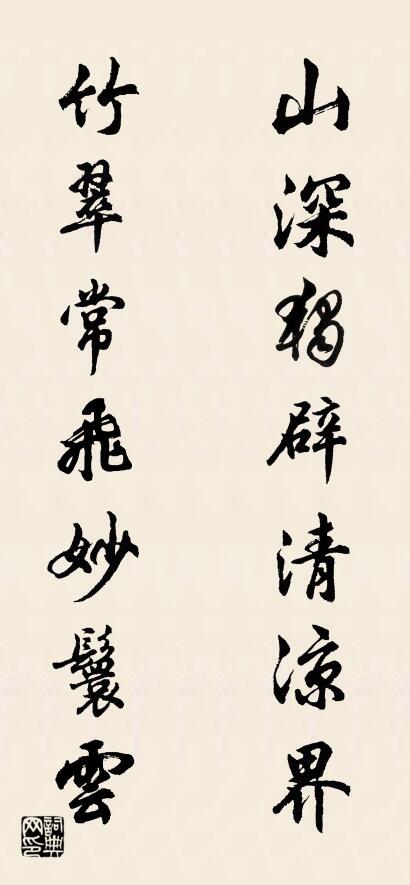 山深獨辟清凉界
竹翠常飛妙鬟雲
詞典网印